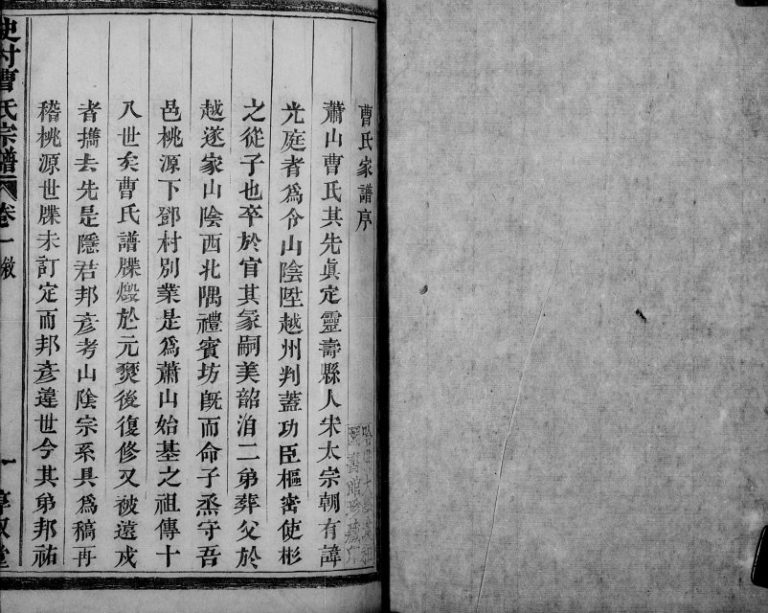 曹氏家譜序
蕭山曹氏其先眞定靈壽縣人宋太宗朝有諱
光庭者爲令山陰陞越州判蓋功臣樞密使彬
之從子也卒於官其冢嗣美韶洎二弟葬父於
越遂家山陰西北隅禮賓坊旣而命子烝守吾
邑桃源下鄧村別業是爲蕭山始基之祖傳十
八世矣曹氏譜牒燬於元燹後復修又被遠戍
者攜去先是隱君邦彥考山陰宗系具爲稿再
稽桃源世牒未訂定而邦彥違世今其弟邦祐
史村曹氏宗譜 卷一敘 一 享敘堂